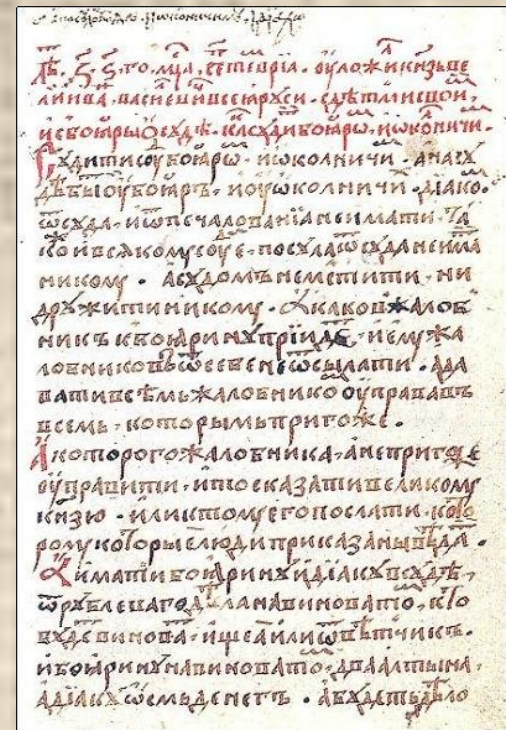 лѣ ҂зs го мца септеврїа уложи кнзь ве
лики ива васиеви всеѧ руси с дѣтми свои
и с боѧры ѡ судѣ ка судити боѧрѡ и ѡколничи
Судити су боѧрѡ и ѡколничи а на су
дѣ быти у боѧръ и у ѡколничи дїако
ѿ суда и ѿ печалованїа не имати та
ко и всѧкому суе посула ѿ суда не има
никому а судомъ не мстити ни
дружити никому А каков жалоб
никъ к боѧрину прїиде и ему жа
лобниковъ ѿ себе не ѿсылати а да
вати всѣмь жалобнико управавъ
всемь которымь пригоже
А которого жалобника а не пригоже
управити и то сказати великому
кнѧзю или к тому его послати кото
рому которые люди приказаны вѣда
А имати боѧрину и дїаку в судѣ
ѿ рублеваго дѣла на виновато кто
буде винова ищеа или ѿвѣтчикъ
и боѧрину на виновато два алтына
а дїаку ѡсмь денегъ а будетъ дѣло